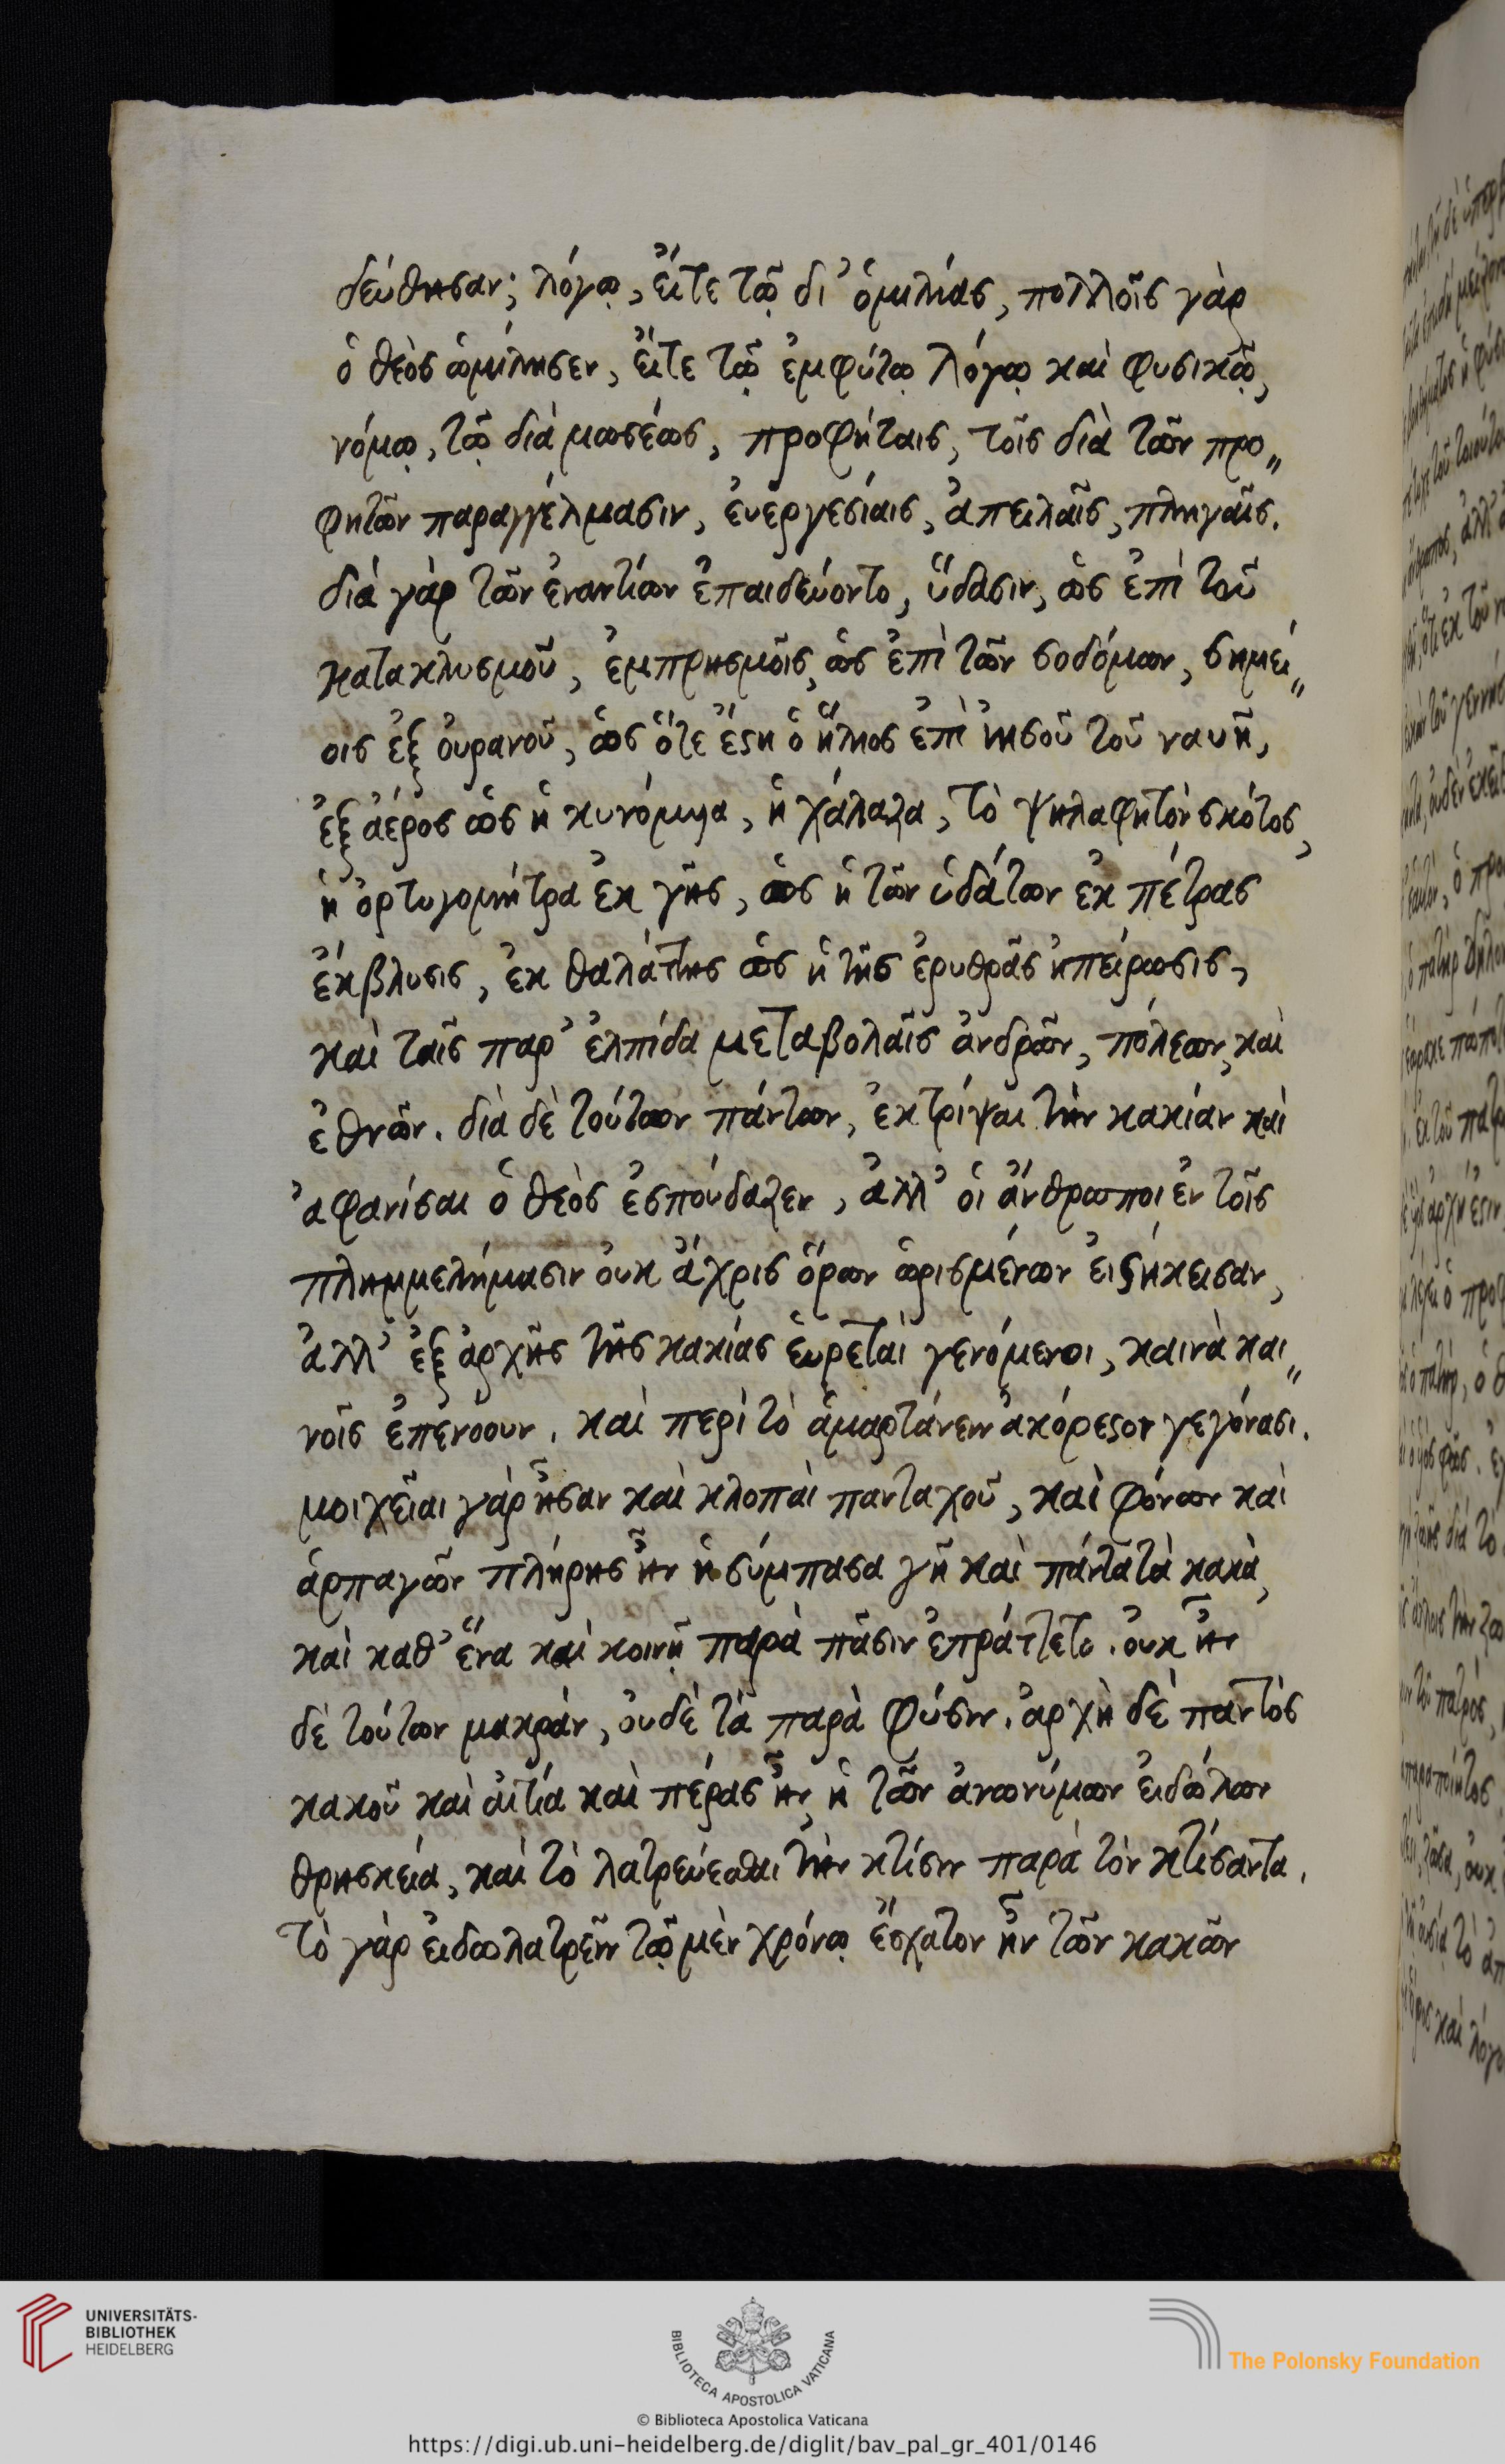 δεύθησαν; λόγῳ, εἴτε τῷ δι' ὁμιλίας, πολλοῖς γὰρ
ὁ θεὸς ὡμίλησεν, εἴτε τῷ ἐμφύτῳ λόγῳ καὶ φυσικῷ,
νόμῳ, τῷ διὰ μωσέως, προφήταις, τοῖς διὰ τῶν προ„
φητῶν παραγγέλμασιν, ἐυεργεσίαις, ἀπειλαῖς, πληγαῖς.
διὰ γὰρ τῶν ἐναντίων ἐπαιδεύοντο, ὕδασιν, ὡς ἐπὶ τοῦ
κατακλυσμοῦ, ἐμπρησμοῖς, ὡς ἐπὶ τῶν σοδόμων, σημεί„
οις ἐξ ὀυρανοῦ, ὡς ὅτε ἔςη ὁ ἥλιος ἐπὶ ἰησοῦ τοῦ ναυῆ,
ἐξ ἀέρος ὡς ἡ κυνόμυια, ἡ χάλαζα, τὸ ψηλαφητὸν σκότος,
ἡ ὀρτυγομήτρα ἐκ γῆς, ὡς ἡ τῶν ὑδάτων ἐκ πέτρας
ἔκβλυσις, ἐκ θαλάττης ὡς ἡ τῆς ἐρυθρᾶς ἠπείρωσις,
καὶ ταῖς παρ' ἐλπίδα μεταβολαῖς ἀνδρῶν, πόλεων, καὶ
ἐθνῶν. διὰ δὲ τούτων πάντων, ἐκτρίψαι τὴν κακίαν καὶ
ἀφανίσαι ὁ θεὸς ἐσπούδαζεν, ἀλλ' ὁι ἄνθρωποι ἐν τοῖς
πλημμελήμασιν ὀυκ ἄχρις ὅρων ὡρισμένων ἐιςήκεισαν,
ἀλλ' ἐξ ἀρχῆς τῆς κακίας ἑυρεταὶ γενόμενοι, καινὰ και„
νοῖς ἐπενόουν. καὶ περὶ τὸ ἁμαρτάνειν ἀκόρεςοι γεγόνασι.
μοιχεῖαι γὰρ ἦσαν καὶ κλοπαὶ πανταχοῦ, καὶ φόνων καὶ
ἁρπαγῶν πλήρης ἦν ἡ σύμπασα γῆ καὶ πάντα τὰ κακὰ,
καὶ καθ' ἕνα καὶ κοινῇ παρὰ πᾶσιν ἐπράττετο. ὀυκ ἦν
δὲ τούτων μακρὰν, ὀυδὲ τὰ παρὰ φύσιν. ἀρχὴ δὲ παντὸς
κακοῦ καὶ ἀιτία καὶ πέρας ἦν, ἡ τῶν ἀνωνύμων ἐιδώλων
θρησκεία, καὶ τὸ λατρεύεσθαι τὴν κτίσιν παρὰ τὸν κτίσαντα.
τὸ γὰρ ἐιδωλατρεῖν τῷ μὲν χρόνῳ ἔσχατον ἦν τῶν κακῶν
UNIVERSITÄTS-
BIBLIOTHEK
HEIDELBERG
BIBLIOTECA APOSTOLICA VATICANA
The Polonsky Foundation
© Biblioteca Apostolica Vaticana
https://digi.ub.uni-heidelberg.de/diglit/bav_pal_gr_401/0146